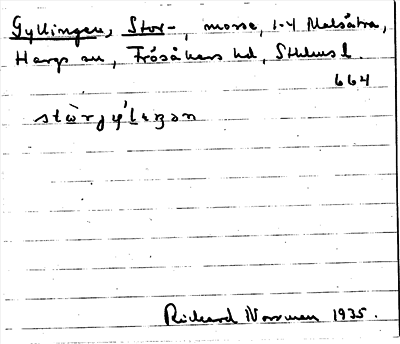 Gyllingen, Stor-, mosse, 1-4 Malsätra,
Hargs sn, Frösåkers hd, Sthlms l.
664
stò̀rjy'leŋən
Richard Norrman 1935.